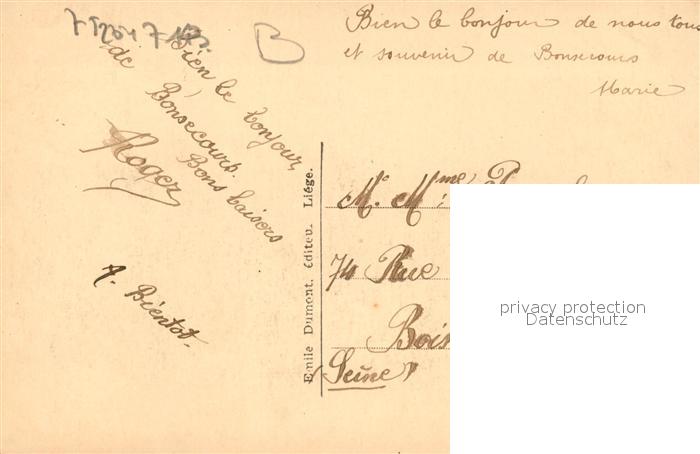 Bien le bonjour de nous tous
et souvenir de Bonsecours
Marie
Bien le bonjour
de Bonsecours.
Bons baisers
Roger
A. Bientot.
Emile Dumont, Editeu. Liége.
M. Mme
74 Rue
Bois
(Seine)
privacy protection
Datenschutz